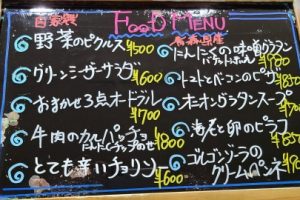 自家製
FOOD MENU
野菜のピクルス ¥500
グリーンシーザーサラダ ¥600
おまかせ3点オードブル ¥1700
牛肉のカルパッチョ
¥1800
とても辛いチョリソー ¥600
青森県産
にんにくの味噌グラタン
バゲット
¥780
トマトとベーコンのピザ
オニオングラタンスープ
¥700
海老と卵のピラフ
¥850
ゴルゴンゾーラの
クリームペンネ